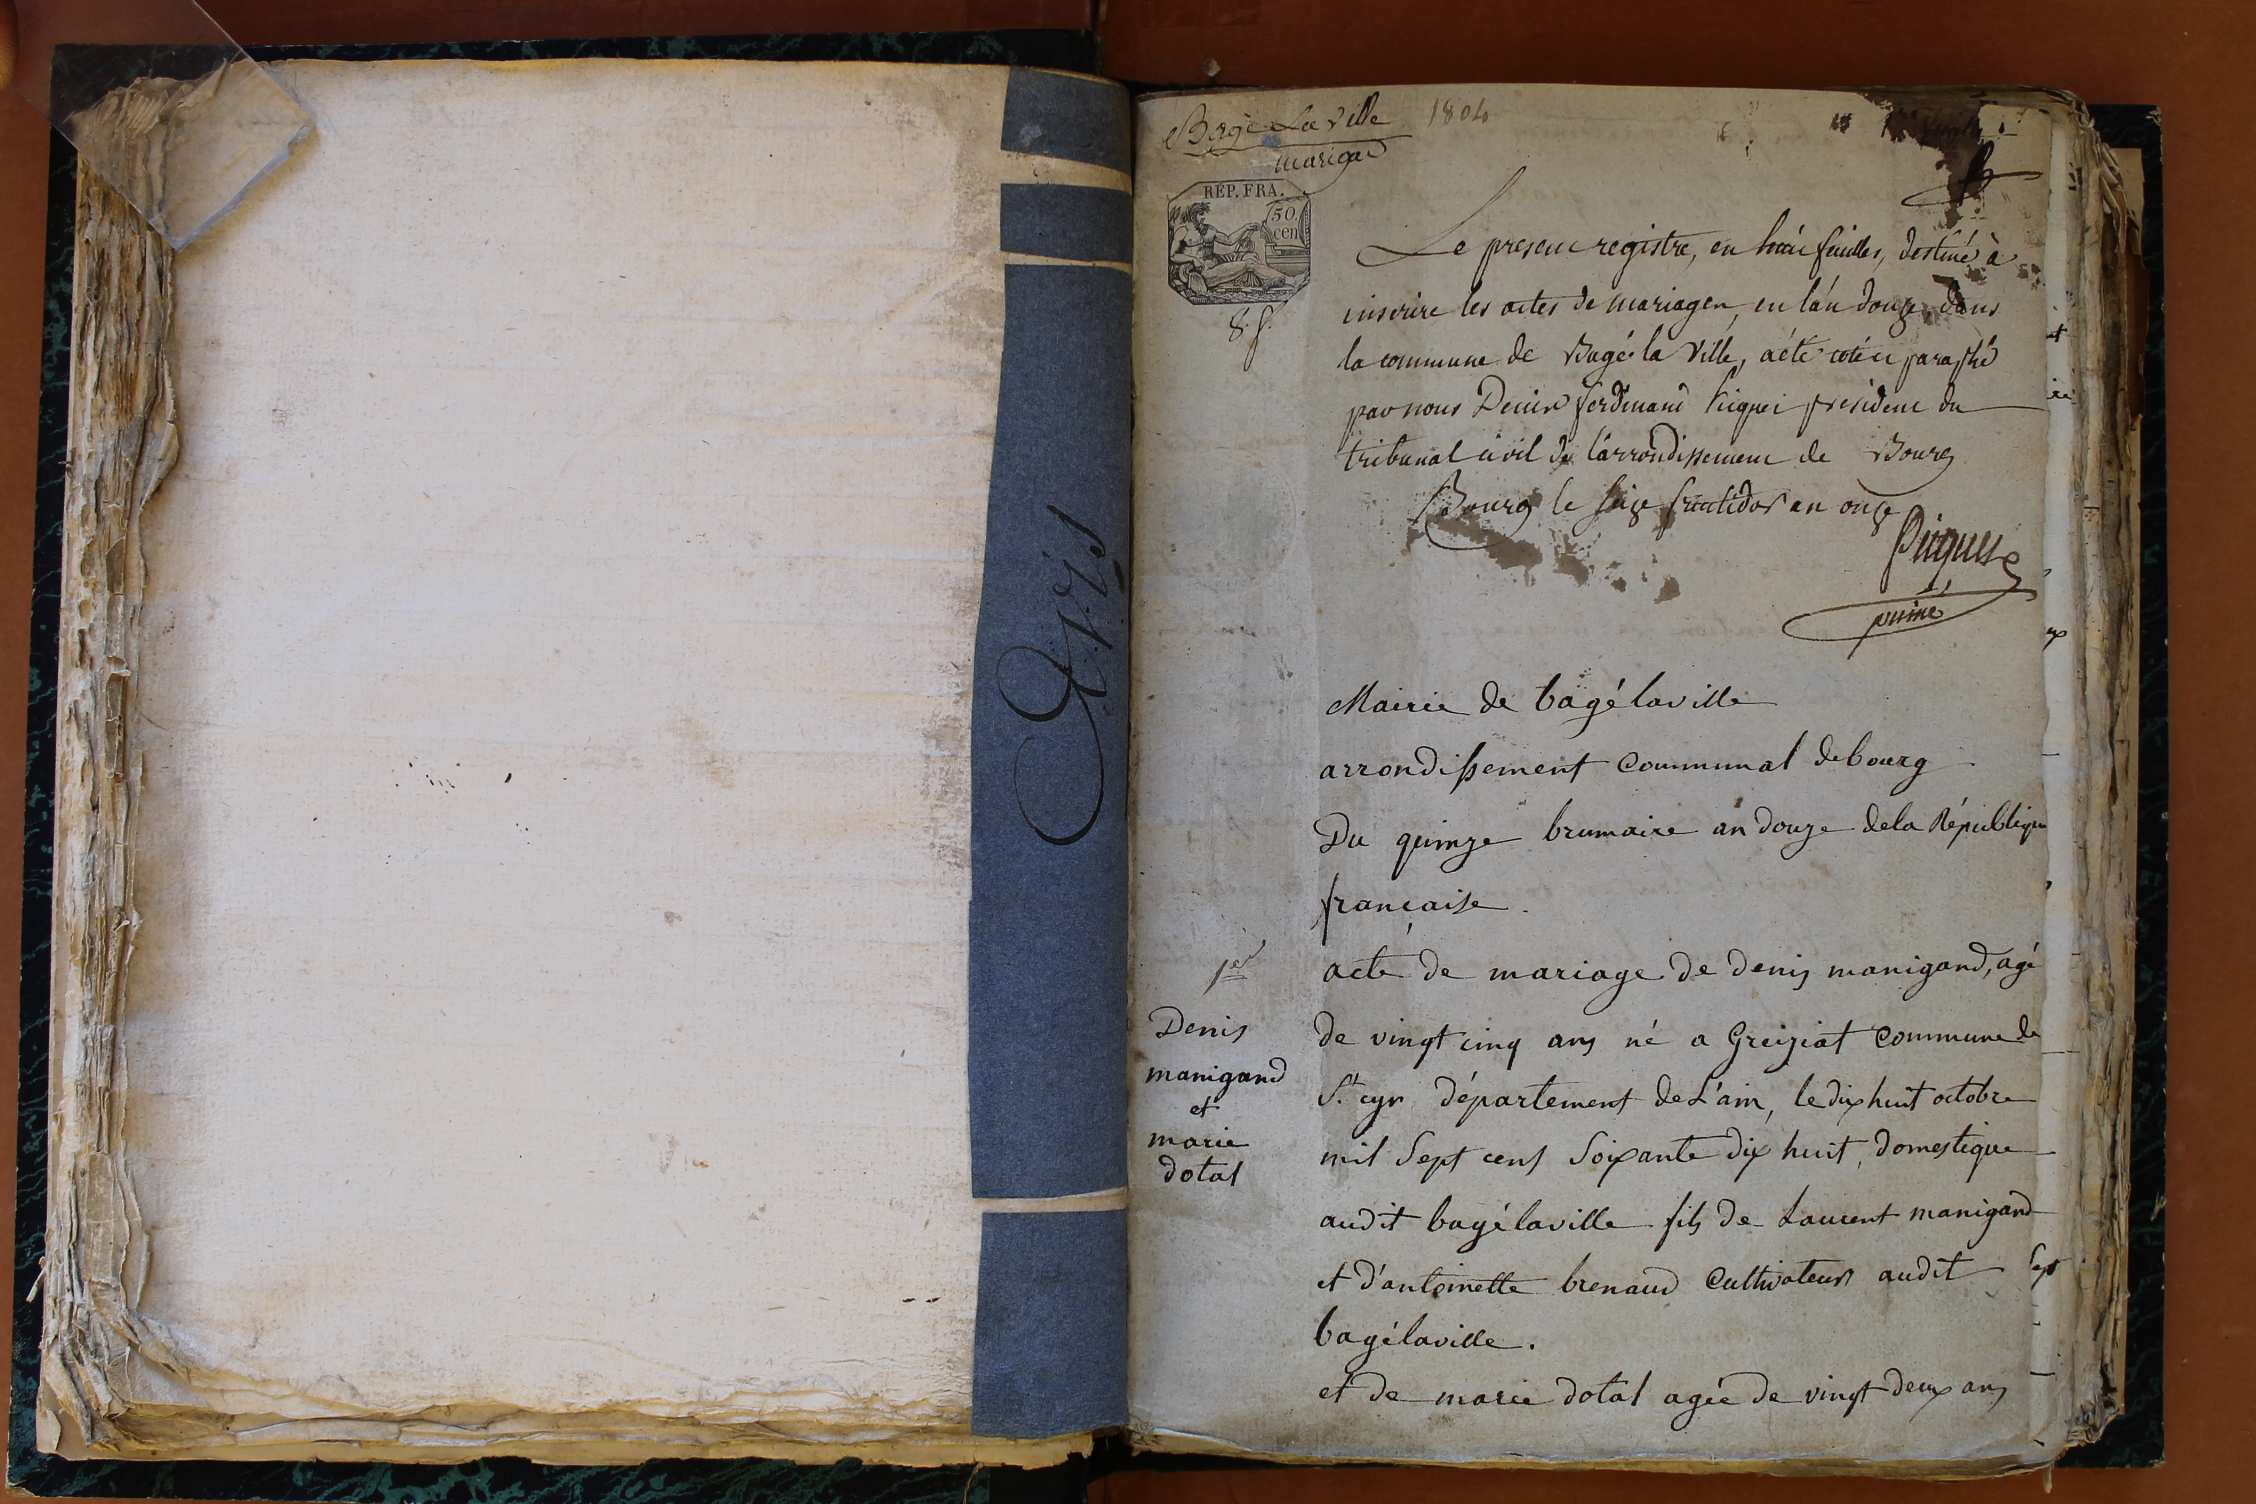 Avis
Bagé La Ville 1804
mariage
REP. FRA.
50
cen
8. f.
Le present registre, en huit feuilles, destiné à
inscrire les actes de mariages, en l'an douze, dans
la commune de Bagé la Ville, a été coté et paraphé
par nous Denis ferdinand président du
tribunal civil de l'arrondissement de Bourg
Bourg le seize fructidor an onze
puiné
Mairie de bagélaville
arrondissement Communal de bourg
Du quinze brumaire an douze dela République
française.
1er
acte de mariage de denis manigand, agé
de vingt cinq ans né a Greiziat Commune de
St. cyr département de L'ain, le dix huit octobre
mil Sept cent Soixante dix huit, domestique
audit bagélaville fils de Laurent manigand
et d'antoinette brenaud Cultivateurs audit
bagélaville.
et de marie dotal agée de vingt deux ans
Denis
manigand
et
marie
dotal